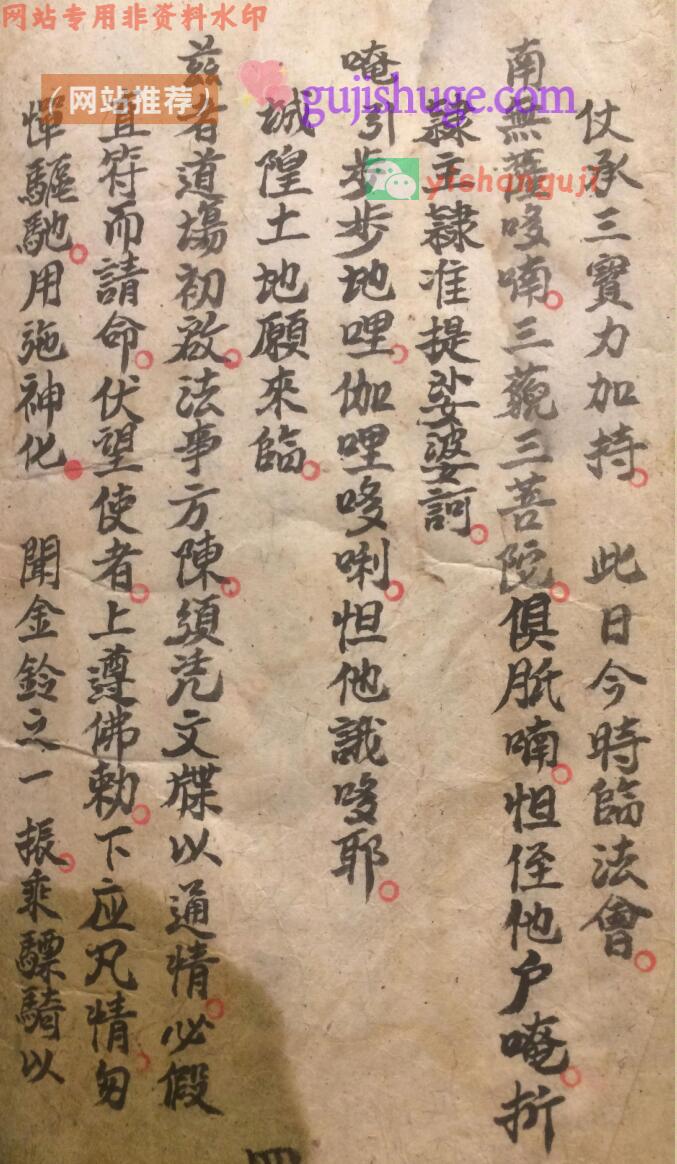 网站专用非资料水印
(网站推荐)
gujishuge.com
yishanguji
仗承三寶力加持。 此日今時臨法會。
南無薩哆喃。三藐三菩陀。俱胝喃。怛侄他戶唵。折
隸主隸准提娑婆訶。
唵引步步地哩。伽哩哆唎。怛他誐哆耶。
城隍土地願來臨。
茲者道場初啟。法事方陳。須凭文牒以通情。必假
直符而請命。伏望使者。上尊佛勅。下应凡情。勿
憚驅馳。用施神化。 聞金鈴之一振。乘驃騎以